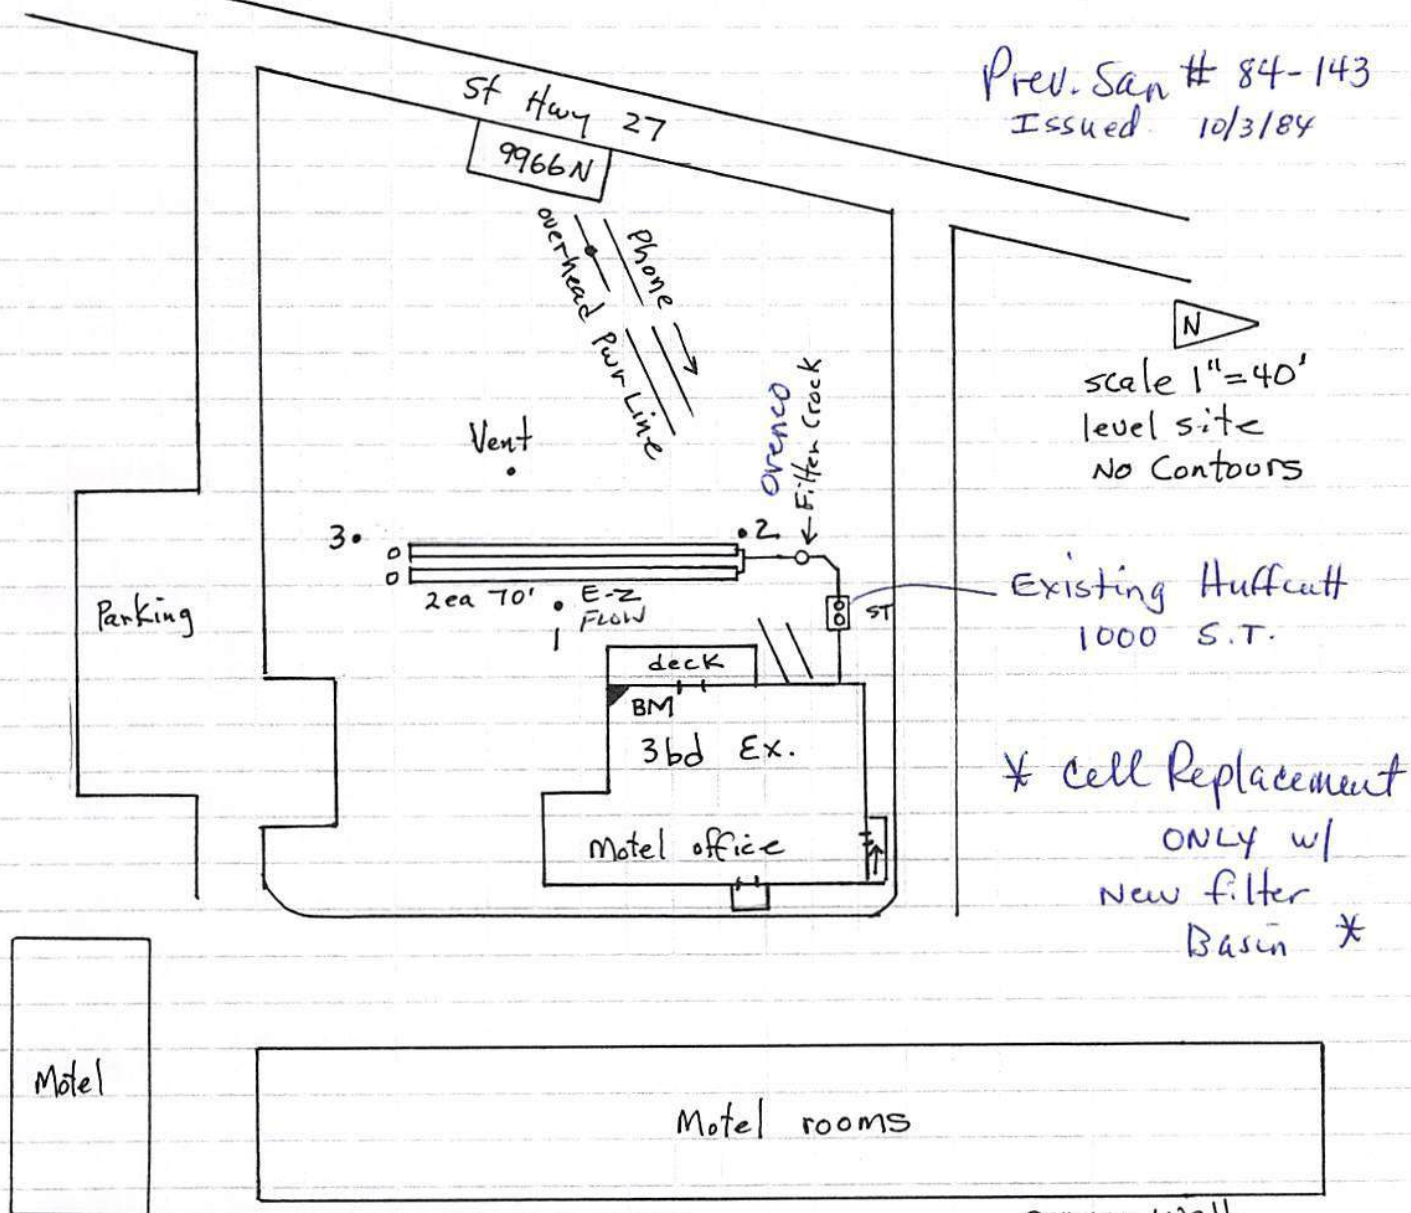 Prev. San # 84-143
Issued 10/3/84
St Hwy 27
9966N
overhead Pwr Line
Phone
N
scale 1"=40'
level site
No Contours
Vent
Orenco
Filter Crock
3
2
2ea 70'
E-Z
FLOW
1
ST
Existing Huffcutt
1000 S.T.
Parking
deck
BM
3bd Ex.
Motel office
* Cell Replacement
ONLY w/
New filter
Basin *
Motel
Motel rooms